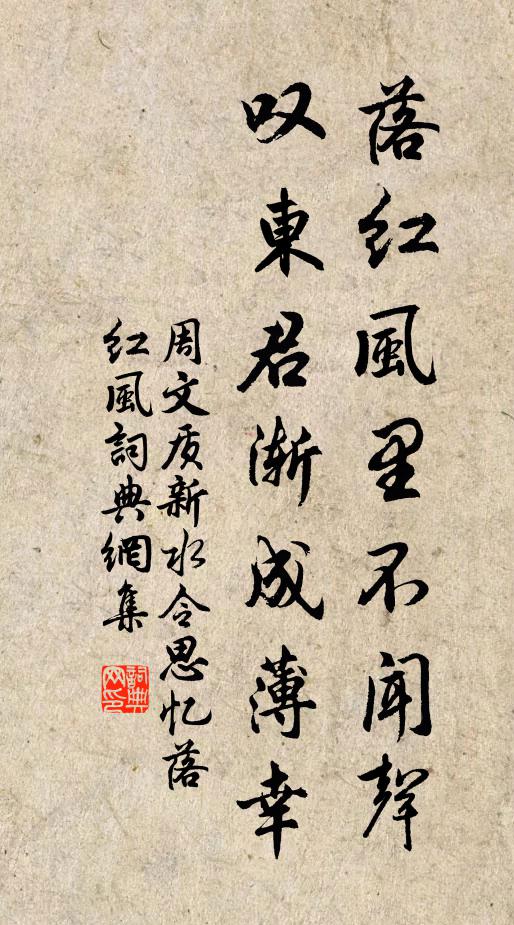 落红風里不闻聲
叹東君渐成薄幸
周文质新水令思忆落
红風詞典網集
詞典
网印